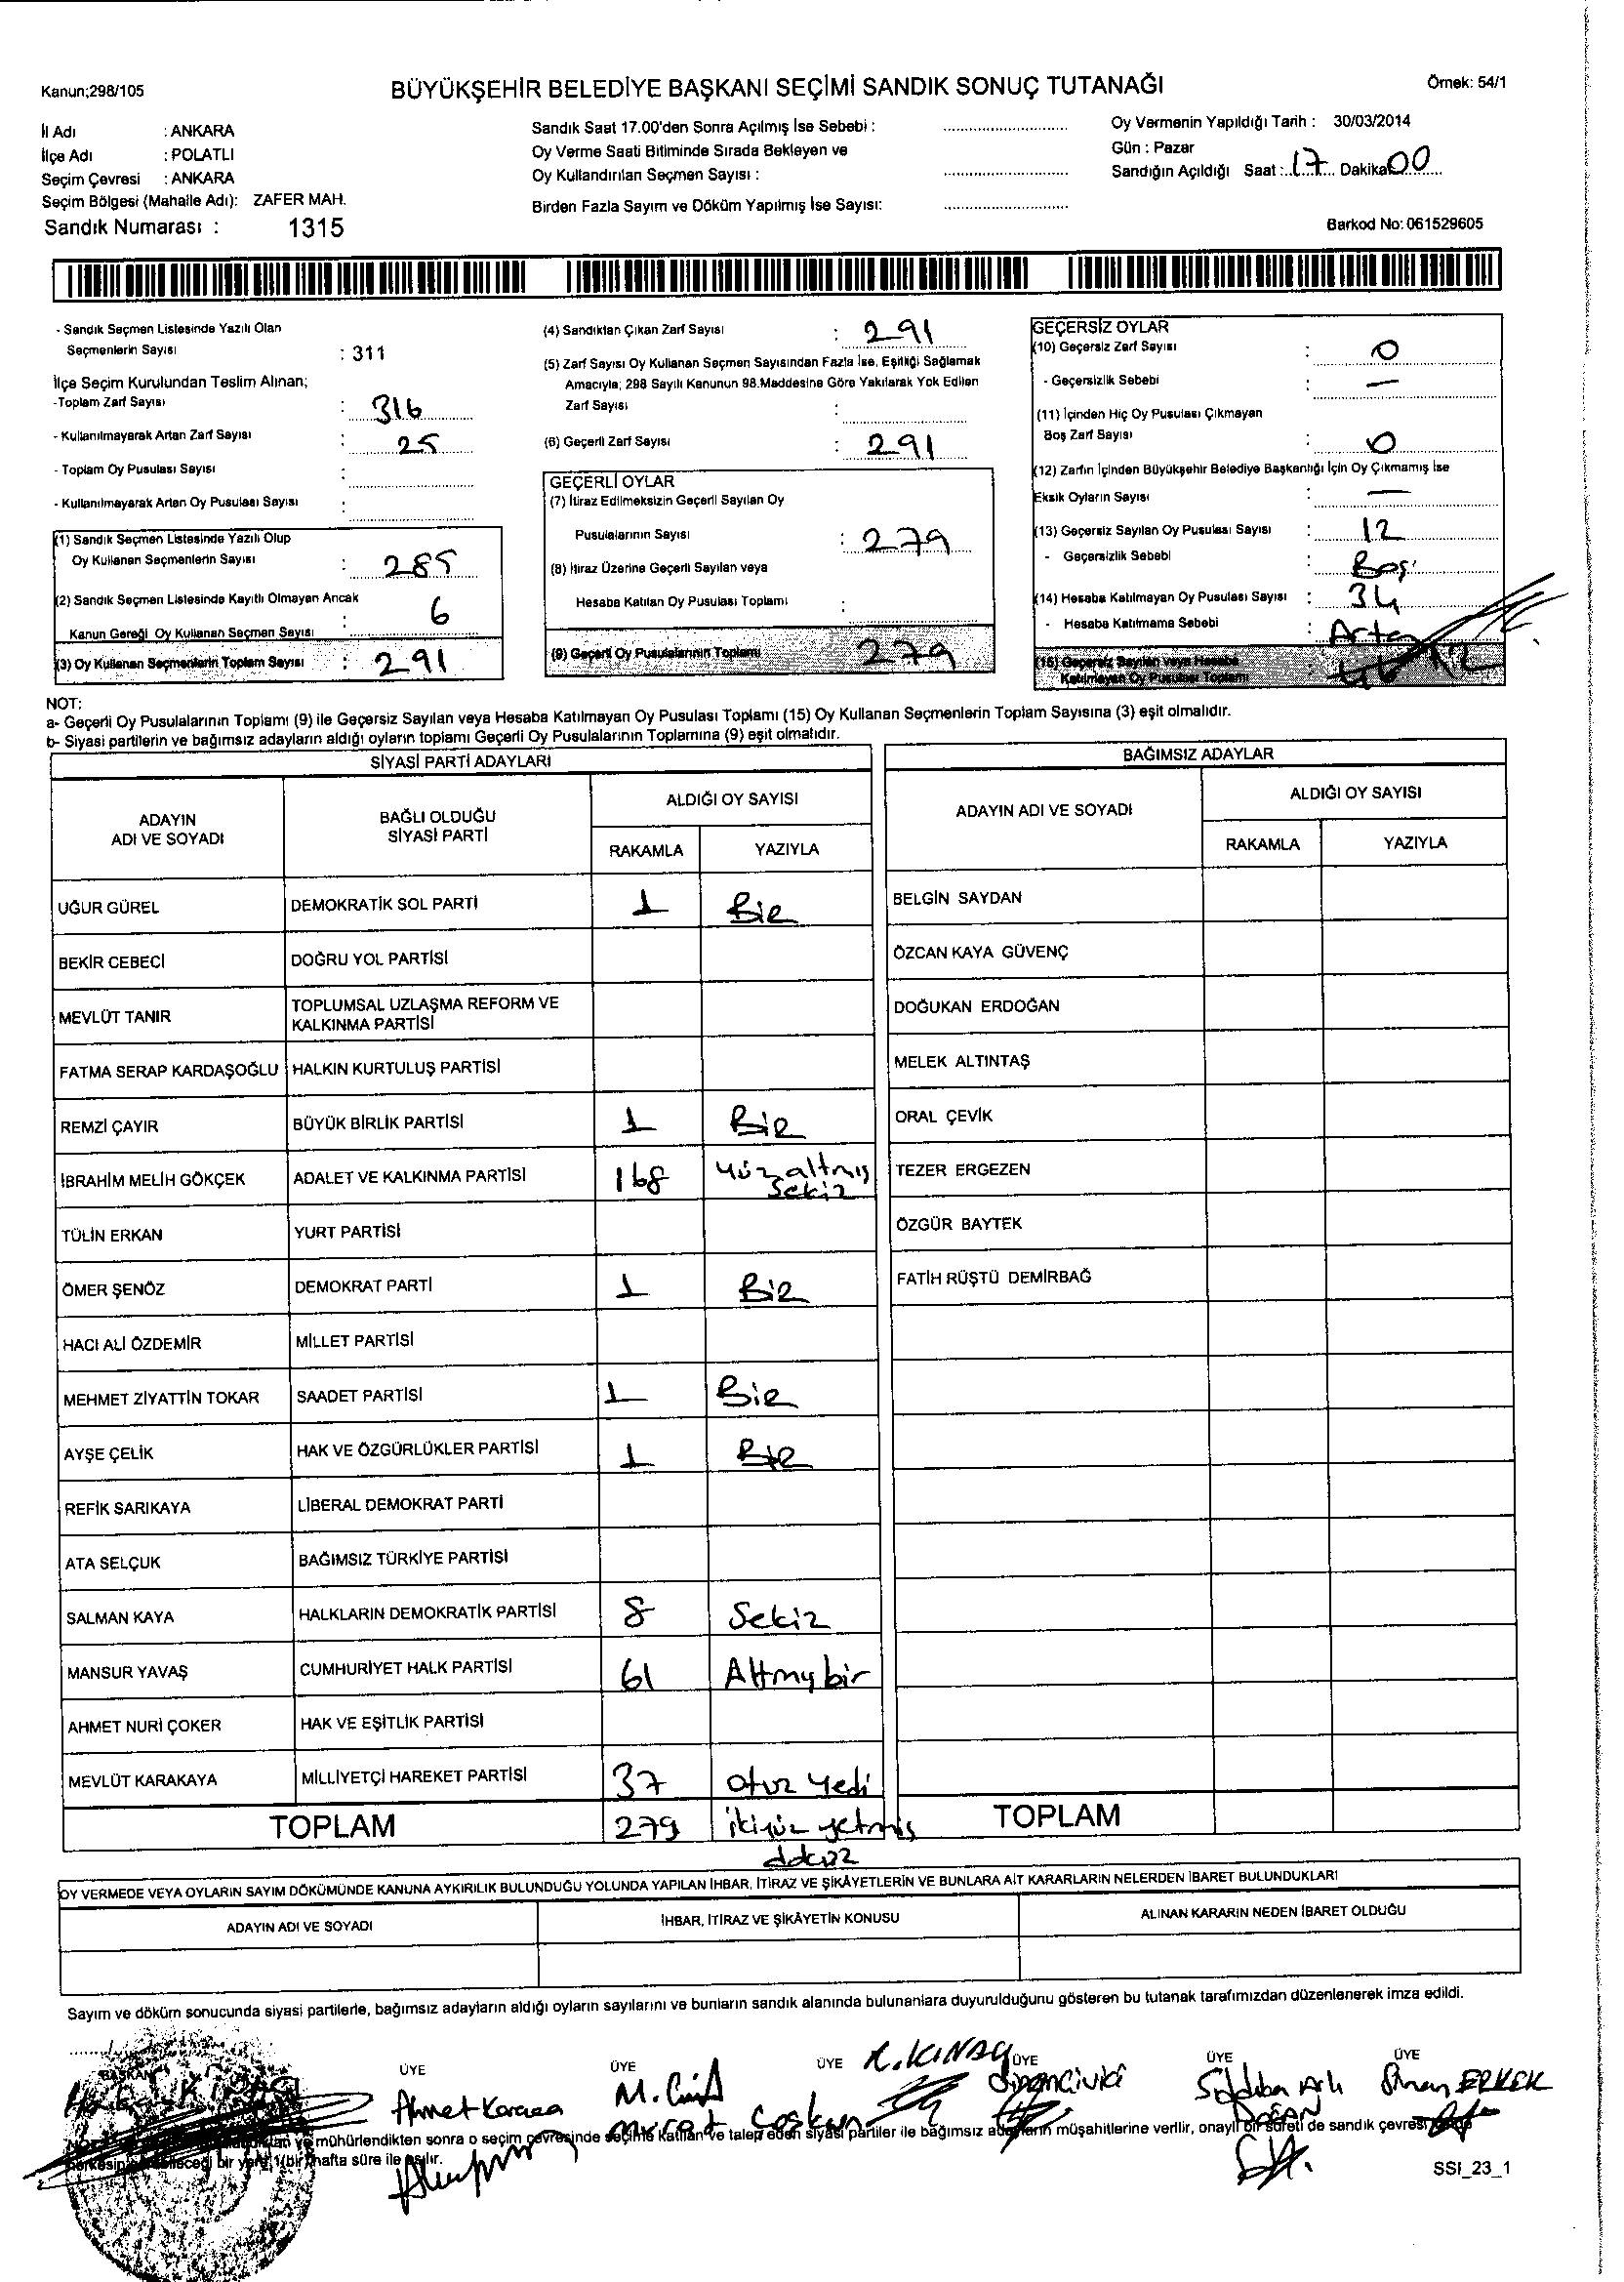 Kanun;298/105
BÜYÜKŞEHİR BELEDİYE BAŞKANI SEÇİMİ SANDIK SONUÇ TUTANAĞI
Örnek: 54/1
İl Adı : ANKARA
İlçe Adı : POLATLI
Seçim Çevresi : ANKARA
Seçim Bölgesi (Mahalle Adı): ZAFER MAH.
Sandık Numarası : 1315
Sandık Saat 17.00'den Sonra Açılmış İse Sebebi :
Oy Verme Saati Bitiminde Sırada Bekleyen ve
Oy Kullandırılan Seçmen Sayısı :
Birden Fazla Sayım ve Döküm Yapılmış İse Sayısı:
Oy Vermenin Yapıldığı Tarih : 30/03/2014
Gün : Pazar
Sandığın Açıldığı Saat : 17 Dakika 00
Barkod No: 061529605
- Sandık Seçmen Listesinde Yazılı Olan
Seçmenlerin Sayısı : 311
İlçe Seçim Kurulundan Teslim Alınan;
-Toplam Zarf Sayısı : 316
- Kullanılmayarak Artan Zarf Sayısı : 25
- Toplam Oy Pusulası Sayısı :
- Kullanılmayarak Artan Oy Pusulası Sayısı :
(1) Sandık Seçmen Listesinde Yazılı Olup
Oy Kullanan Seçmenlerin Sayısı : 285
(2) Sandık Seçmen Listesinde Kayıtlı Olmayan Ancak
Kanun Gereği Oy Kullanan Seçmen Sayısı : 6
(3) Oy Kullanan Seçmenlerin Toplam Sayısı : 291
(4) Sandıktan Çıkan Zarf Sayısı : 291
(5) Zarf Sayısı Oy Kullanan Seçmen Sayısından Fazla İse, Eşitliği Sağlamak
Amacıyla; 298 Sayılı Kanunun 98.Maddesine Göre Yakılarak Yok Edilen
Zarf Sayısı :
(6) Geçerli Zarf Sayısı : 291
GEÇERLİ OYLAR
(7) İtiraz Edilmeksizin Geçerli Sayılan Oy
Pusulalarının Sayısı : 279
(8) İtiraz Üzerine Geçerli Sayılan veya
Hesaba Katılan Oy Pusulası Toplamı :
(9) Geçerli Oy Pusulalarının Toplamı 279
GEÇERSİZ OYLAR
(10) Geçersiz Zarf Sayısı : 0
- Geçersizlik Sebebi : —
(11) İçinden Hiç Oy Pusulası Çıkmayan
Boş Zarf Sayısı : 0
(12) Zarfın İçinden Büyükşehir Belediye Başkanlığı İçin Oy Çıkmamış İse
Eksik Oyların Sayısı : —
(13) Geçersiz Sayılan Oy Pusulası Sayısı : 12
- Geçersizlik Sebebi : Boş
(14) Hesaba Katılmayan Oy Pusulası Sayısı : 34
- Hesaba Katılmama Sebebi : Artan
(15) Geçersiz Sayılan veya Hesaba
Katılmayan Oy Pusulası Toplamı : 46 12
NOT:
a- Geçerli Oy Pusulalarının Toplamı (9) ile Geçersiz Sayılan veya Hesaba Katılmayan Oy Pusulası Toplamı (15) Oy Kullanan Seçmenlerin Toplam Sayısına (3) eşit olmalıdır.
b- Siyasi partilerin ve bağımsız adayların aldığı oyların toplamı Geçerli Oy Pusulalarının Toplamına (9) eşit olmalıdır.
SİYASİ PARTİ ADAYLARI
ADAYIN ADI VE SOYADI
BAĞLI OLDUĞU SİYASİ PARTİ
ALDIĞI OY SAYISI
RAKAMLA YAZIYLA
UĞUR GÜREL DEMOKRATİK SOL PARTİ 1 Bir
BEKİR CEBECİ DOĞRU YOL PARTİSİ
MEVLÜT TANIR TOPLUMSAL UZLAŞMA REFORM VE KALKINMA PARTİSİ
FATMA SERAP KARDAŞOĞLU HALKIN KURTULUŞ PARTİSİ
REMZİ ÇAYIR BÜYÜK BİRLİK PARTİSİ 1 Bir
İBRAHİM MELİH GÖKÇEK ADALET VE KALKINMA PARTİSİ 168 Yüz altmış Sekiz
TÜLİN ERKAN YURT PARTİSİ
ÖMER ŞENÖZ DEMOKRAT PARTİ 1 Bir
HACI ALİ ÖZDEMİR MİLLET PARTİSİ
MEHMET ZİYATTİN TOKAR SAADET PARTİSİ 1 Bir
AYŞE ÇELİK HAK VE ÖZGÜRLÜKLER PARTİSİ 1 Bir
REFİK SARIKAYA LİBERAL DEMOKRAT PARTİ
ATA SELÇUK BAĞIMSIZ TÜRKİYE PARTİSİ
SALMAN KAYA HALKLARIN DEMOKRATİK PARTİSİ 8 Sekiz
MANSUR YAVAŞ CUMHURİYET HALK PARTİSİ 61 Altmış bir
AHMET NURİ ÇOKER HAK VE EŞİTLİK PARTİSİ
MEVLÜT KARAKAYA MİLLİYETÇİ HAREKET PARTİSİ 37 otuz yedi
TOPLAM 279 ikiyüz yetmiş dokuz
BAĞIMSIZ ADAYLAR
ADAYIN ADI VE SOYADI
ALDIĞI OY SAYISI
RAKAMLA YAZIYLA
BELGİN SAYDAN
ÖZCAN KAYA GÜVENÇ
DOĞUKAN ERDOĞAN
MELEK ALTINTAŞ
ORAL ÇEVİK
TEZER ERGEZEN
ÖZGÜR BAYTEK
FATİH RÜŞTÜ DEMİRBAĞ
TOPLAM
OY VERMEDE VEYA OYLARIN SAYIM DÖKÜMÜNDE KANUNA AYKIRILIK BULUNDUĞU YOLUNDA YAPILAN İHBAR, İTİRAZ VE ŞİKÂYETLERİN VE BUNLARA AİT KARARLARIN NELERDEN İBARET BULUNDUKLARI
ADAYIN ADI VE SOYADI İHBAR, İTİRAZ VE ŞİKÂYETİN KONUSU ALINAN KARARIN NEDEN İBARET OLDUĞU
Sayım ve döküm sonucunda siyasi partilerle, bağımsız adayların aldığı oyların sayılarını ve bunların sandık alanında bulunanlara duyurulduğunu gösteren bu tutanak tarafımızdan düzenlenerek imza edildi.
BAŞKAN ÜYE ÜYE ÜYE ÜYE ÜYE ÜYE
Ahmet Karaca
Murat Coşkun
R. KINAY
Sinan ERKEK
DOĞAN
mühürlendikten sonra o seçim çevresinde seçime katılan ve talep eden siyasi partiler ile bağımsız adayların müşahitlerine verilir, onaylı bir sureti de sandık çevresi
bir yere 1(bir) hafta süre ile asılır.
SSI_23_1